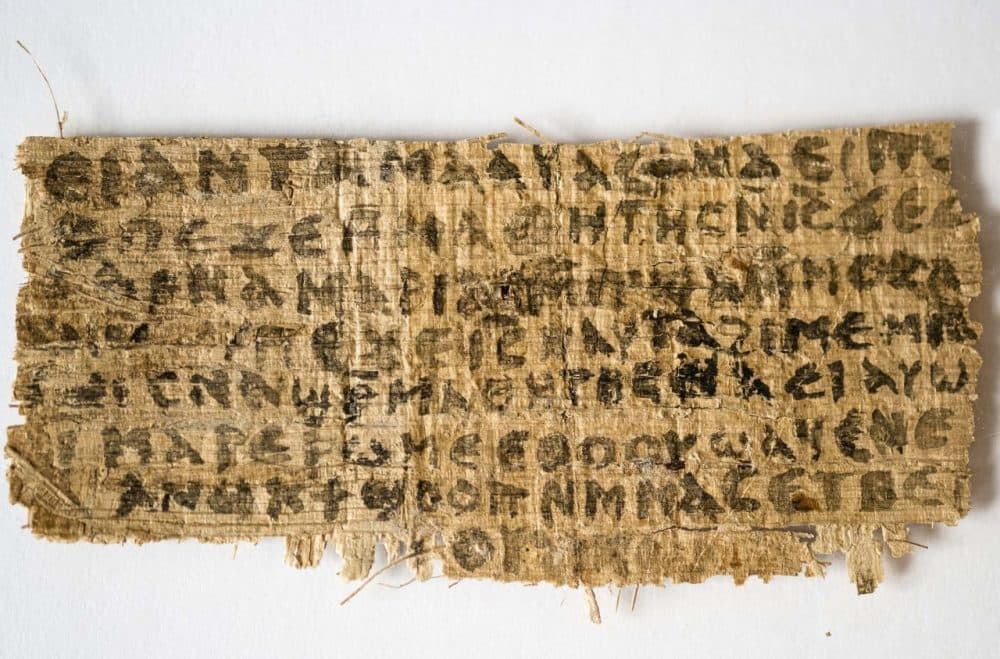 ⲉⲓ ⲁⲛ ⲧⲁⲙⲁⲁⲩ ⲁⲥϯ ⲛⲁⲉⲓ ⲡ
ⲥ ⲡⲉϫⲉ ⲙⲙⲁⲑⲏⲧⲏⲥ ⲛⲓ̅ⲥ̅ ϫⲉ ⲥ
ⲁⲣⲛⲁ ⲙⲁⲣⲓⲁⲙ ⲙⲡϣⲁ ⲙⲙⲟⲥ ⲁ
ⲡⲉϫⲉ ⲓ̅ⲥ̅ ⲛⲁⲩ ⲧⲁϩⲓⲙⲉ ⲙⲛ
ⲥⲛⲁϣⲣⲙⲁⲑⲏⲧⲏⲥ ⲛⲁⲉⲓ ⲁⲩⲱ
ⲓ ⲙⲁⲣⲉⲣⲱⲙⲉ ⲉⲑⲟⲟⲩ ϣⲁϥⲉ ⲛⲉ
ⲁⲛⲟⲕ ϯϣⲟⲟⲡ ⲛⲙⲙⲁⲥ ⲉⲧⲃⲉ